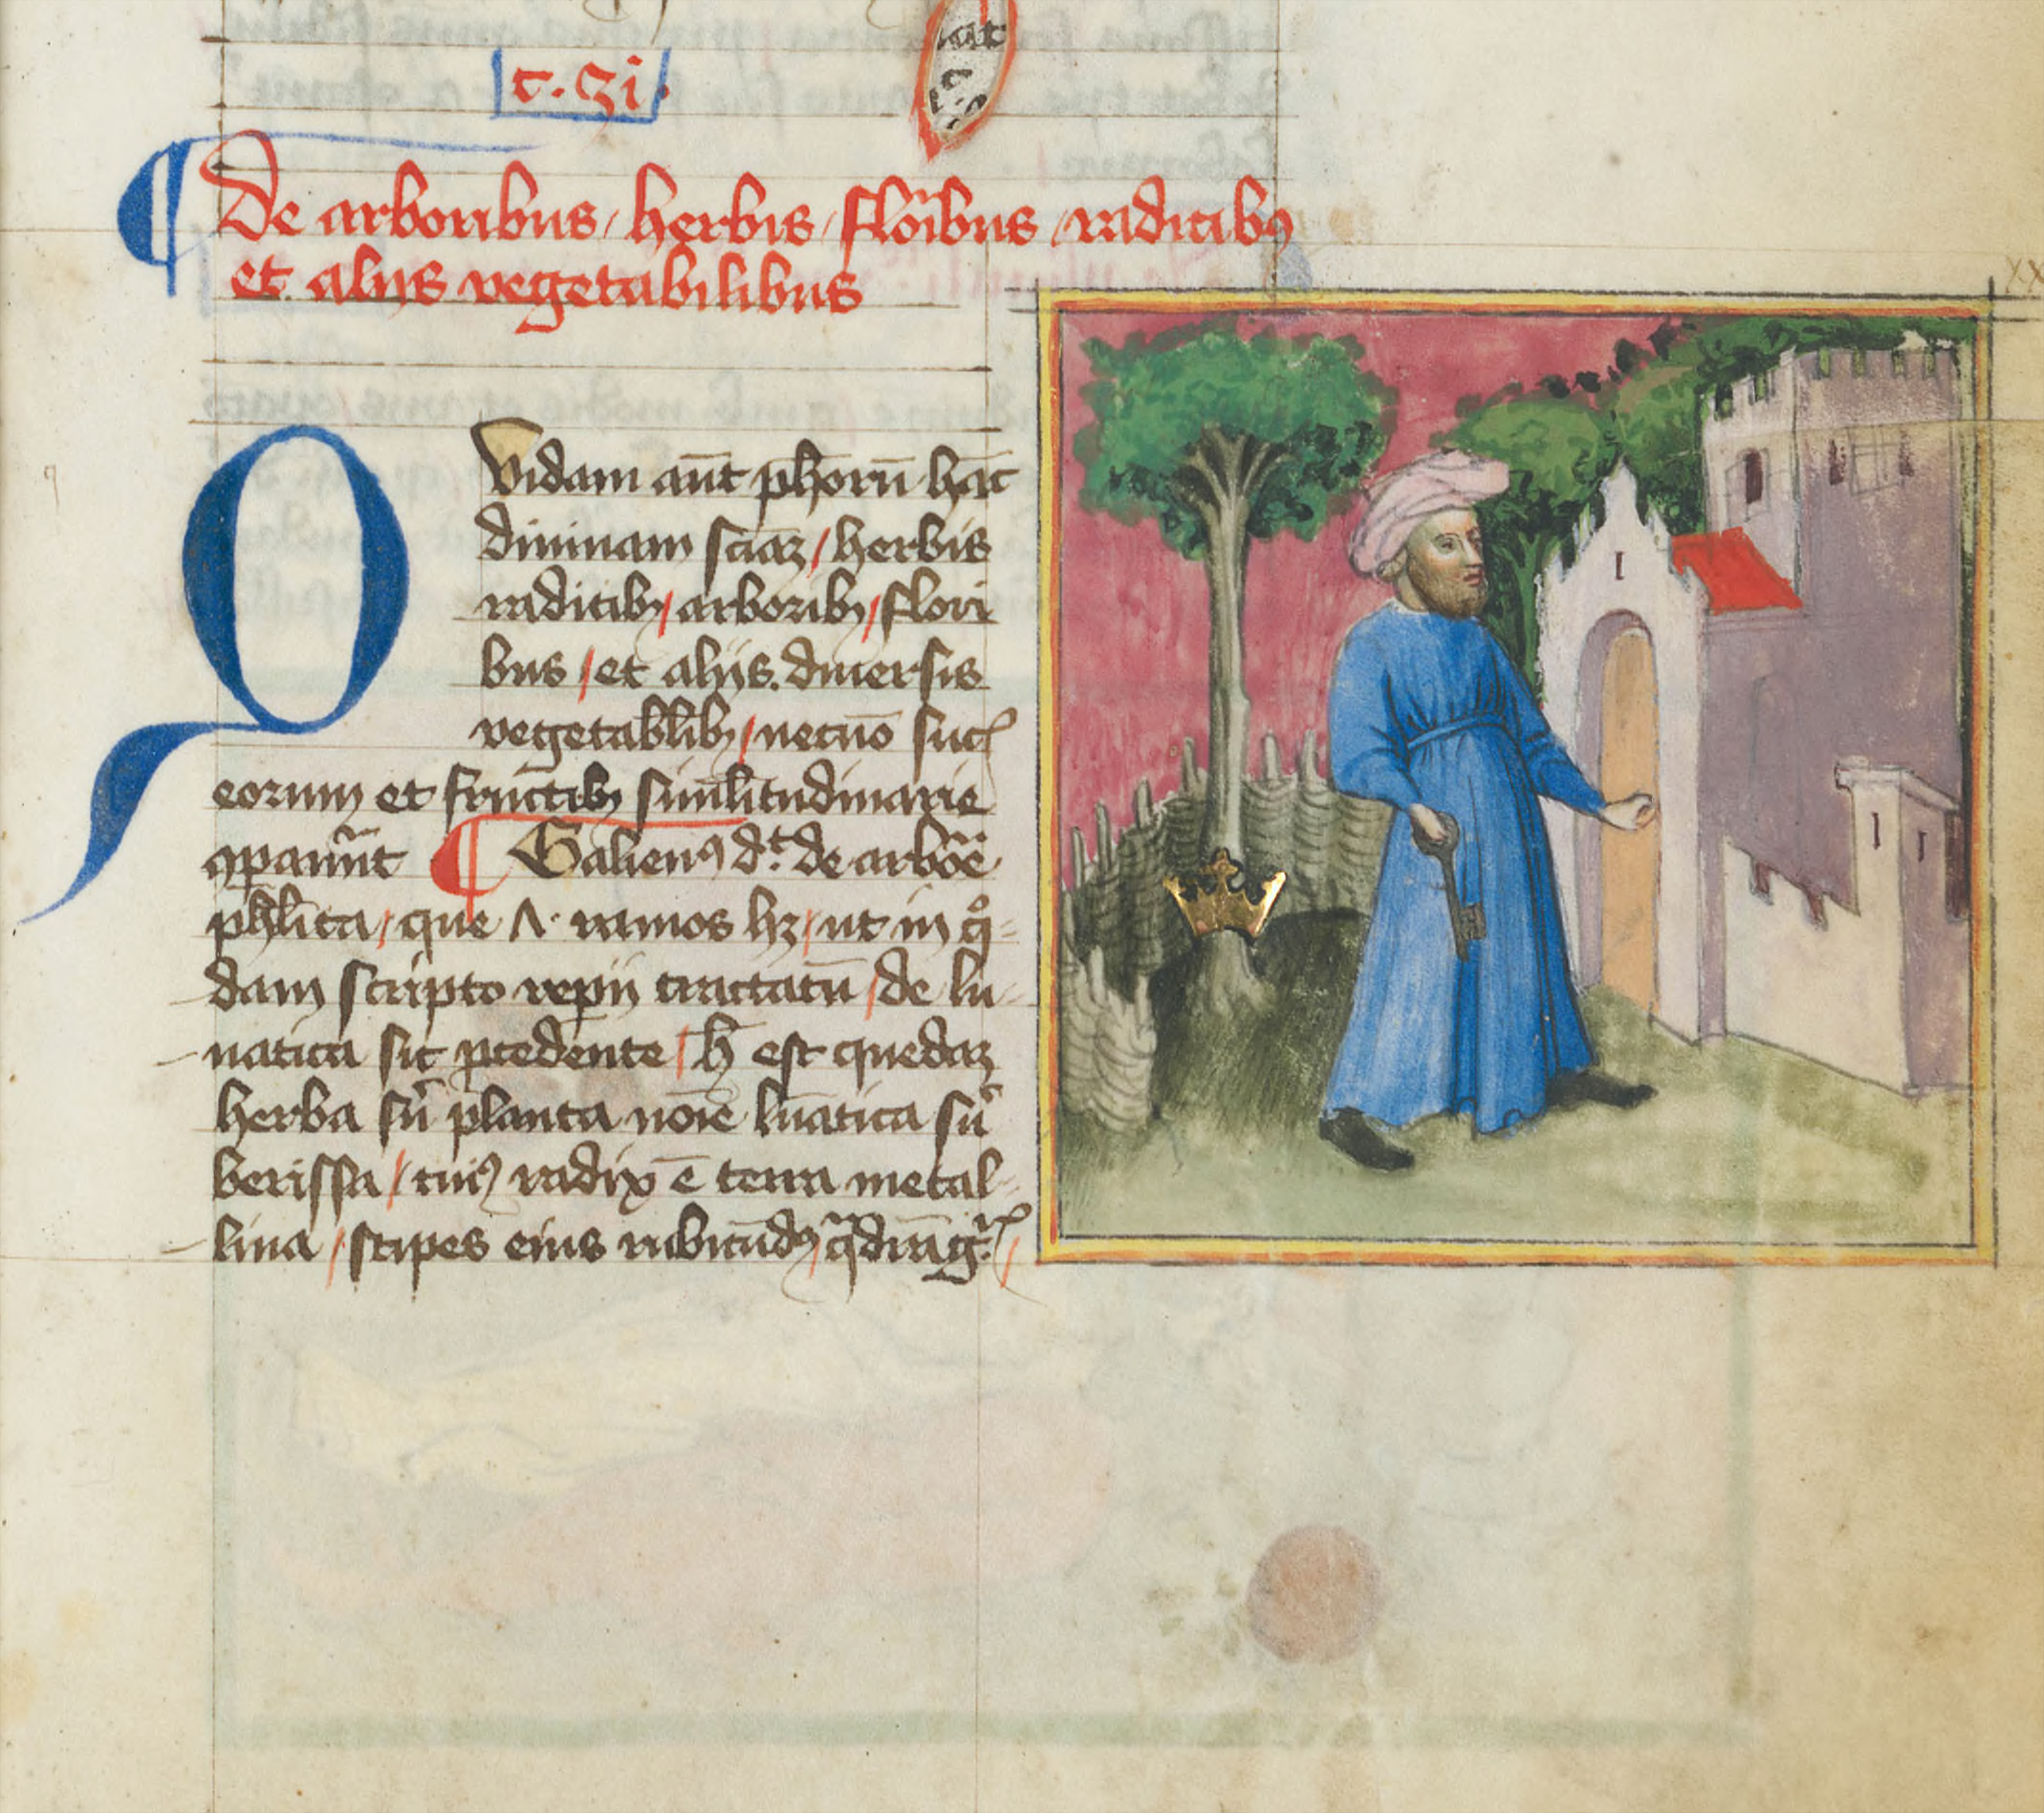 c. 3i.
De arboribus / herbis / floribus / radicibꝰ
et alijs vegetabilibus
Quidam aūt ph̄orū hāc
diuinam sciāꝫ / herbis
radicibꝫ / arboribꝫ / flori
bus / et alijs diuersis
vegetabl̄ibꝫ / necnō succ̄
eorum et fructibꝫ similitudinarie
ꝯparauūt ¶ Galienꝰ d.t de arbōe
ph̄ica / que Λ. ramos hꝫ / ut in q̊-
dam scripto reperi tractatū / de lu-
natica sic p̄cedente / h̄ est quedaꝫ
herba su̅ planta nōīe lūatica su̅
berissa / cuiꝰ radix ē terra metal-
lina / stipes eius rubicūdꝰ